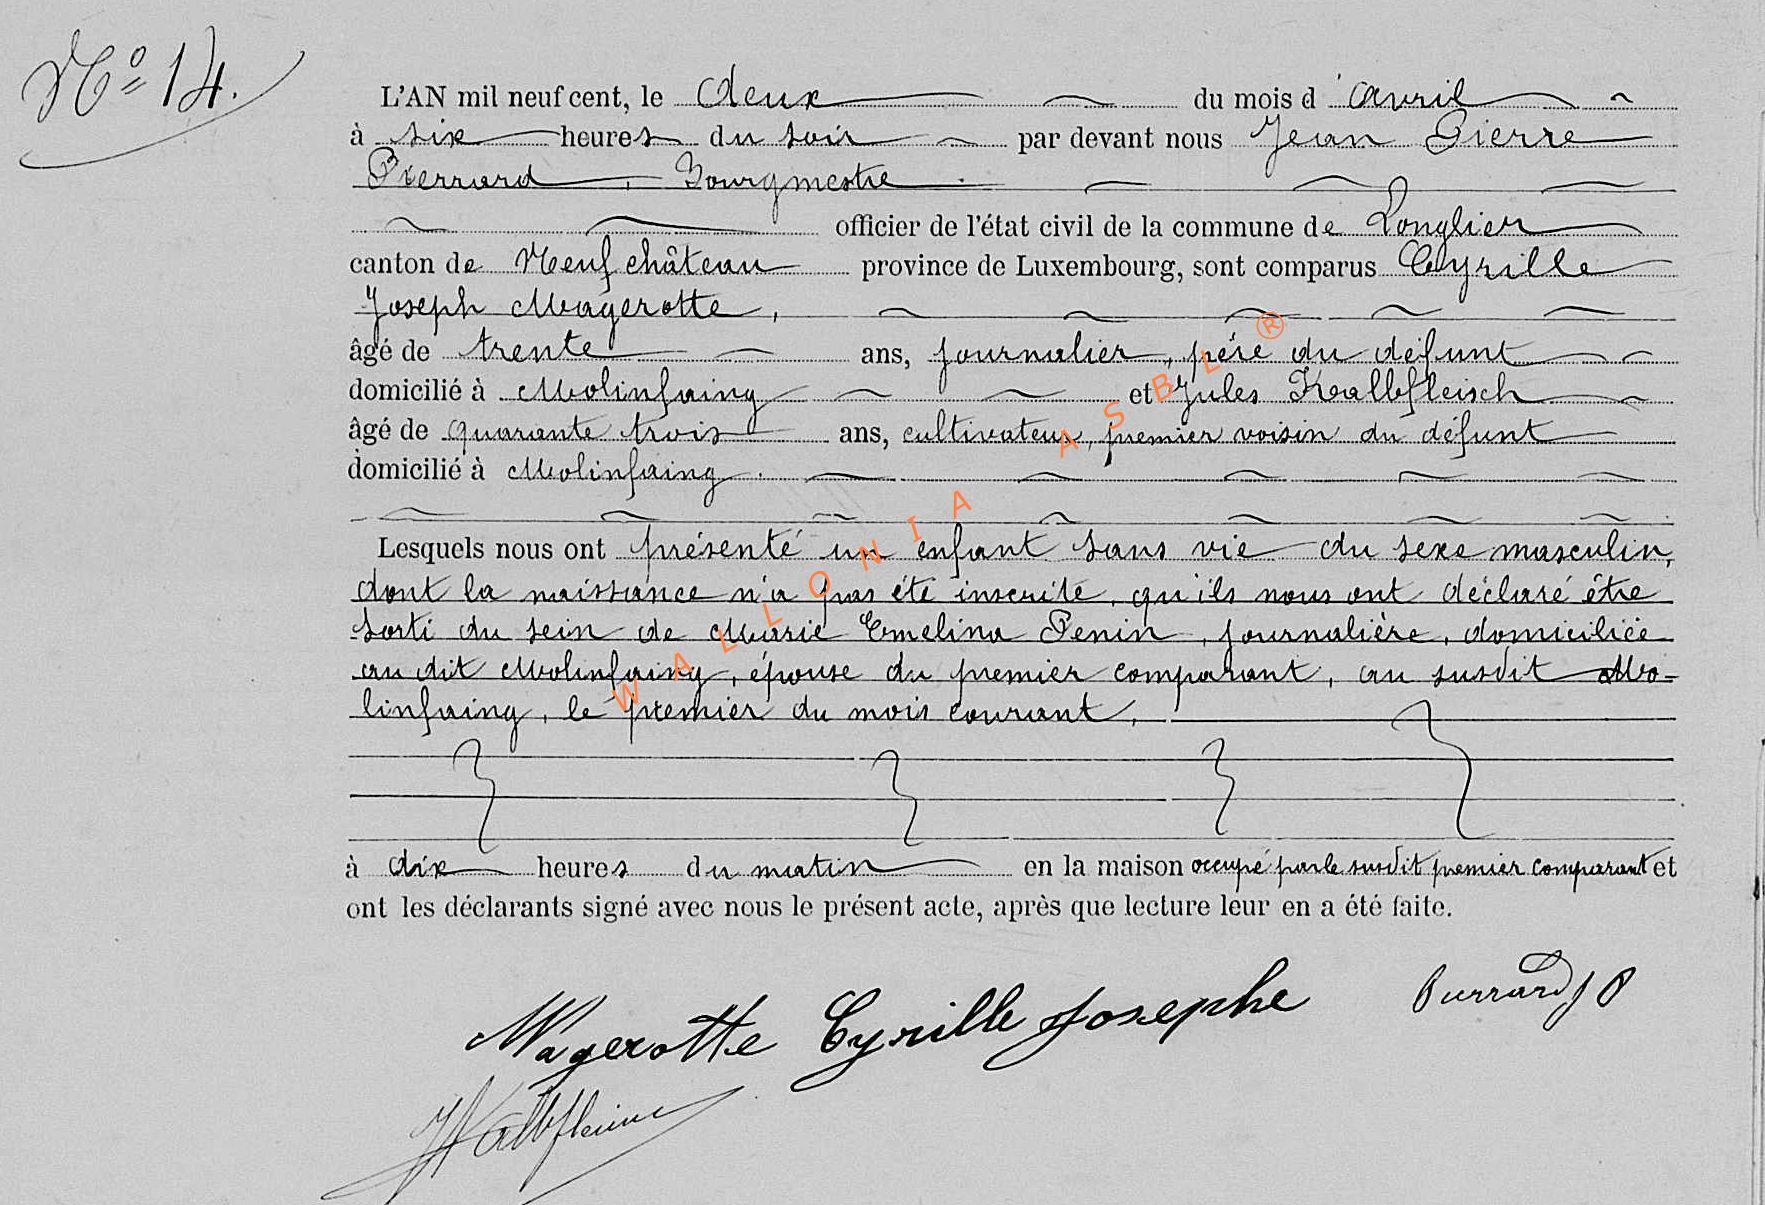 N° 14.
L'AN mil neuf cent, le deux du mois d'avril
à six heures du soir par devant nous Jean Pierre
Pierrard, Bourgmestre
officier de l'état civil de la commune de Longlier
canton de Neufchâteau province de Luxembourg, sont comparus Cyrille
Joseph Magerotte,
âgé de trente ans, journalier, père du défunt
domicilié à Molinfaing et Jules Kalbfleisch
âgé de quarante trois ans, cultivateur, premier voisin du défunt
domicilié à Molinfaing.
Lesquels nous ont présenté un enfant sans vie du sexe masculin,
dont la naissance n'a pas été inscrite, qu'ils nous ont déclaré être
sorti du sein de Marie Emelina Penin, journalière, domiciliée
au dit Molinfaing, épouse du premier comparant, au susdit Mo-
linfaing, le premier du mois courant,
à dix heures du matin en la maison occupé par le susdit premier comparant et
ont les déclarants signé avec nous le présent acte, après que lecture leur en a été faite.
Magerotte Cyrille Josephe Pierrard J P
J Kalbfleisch
WALLONIA ASBL ®